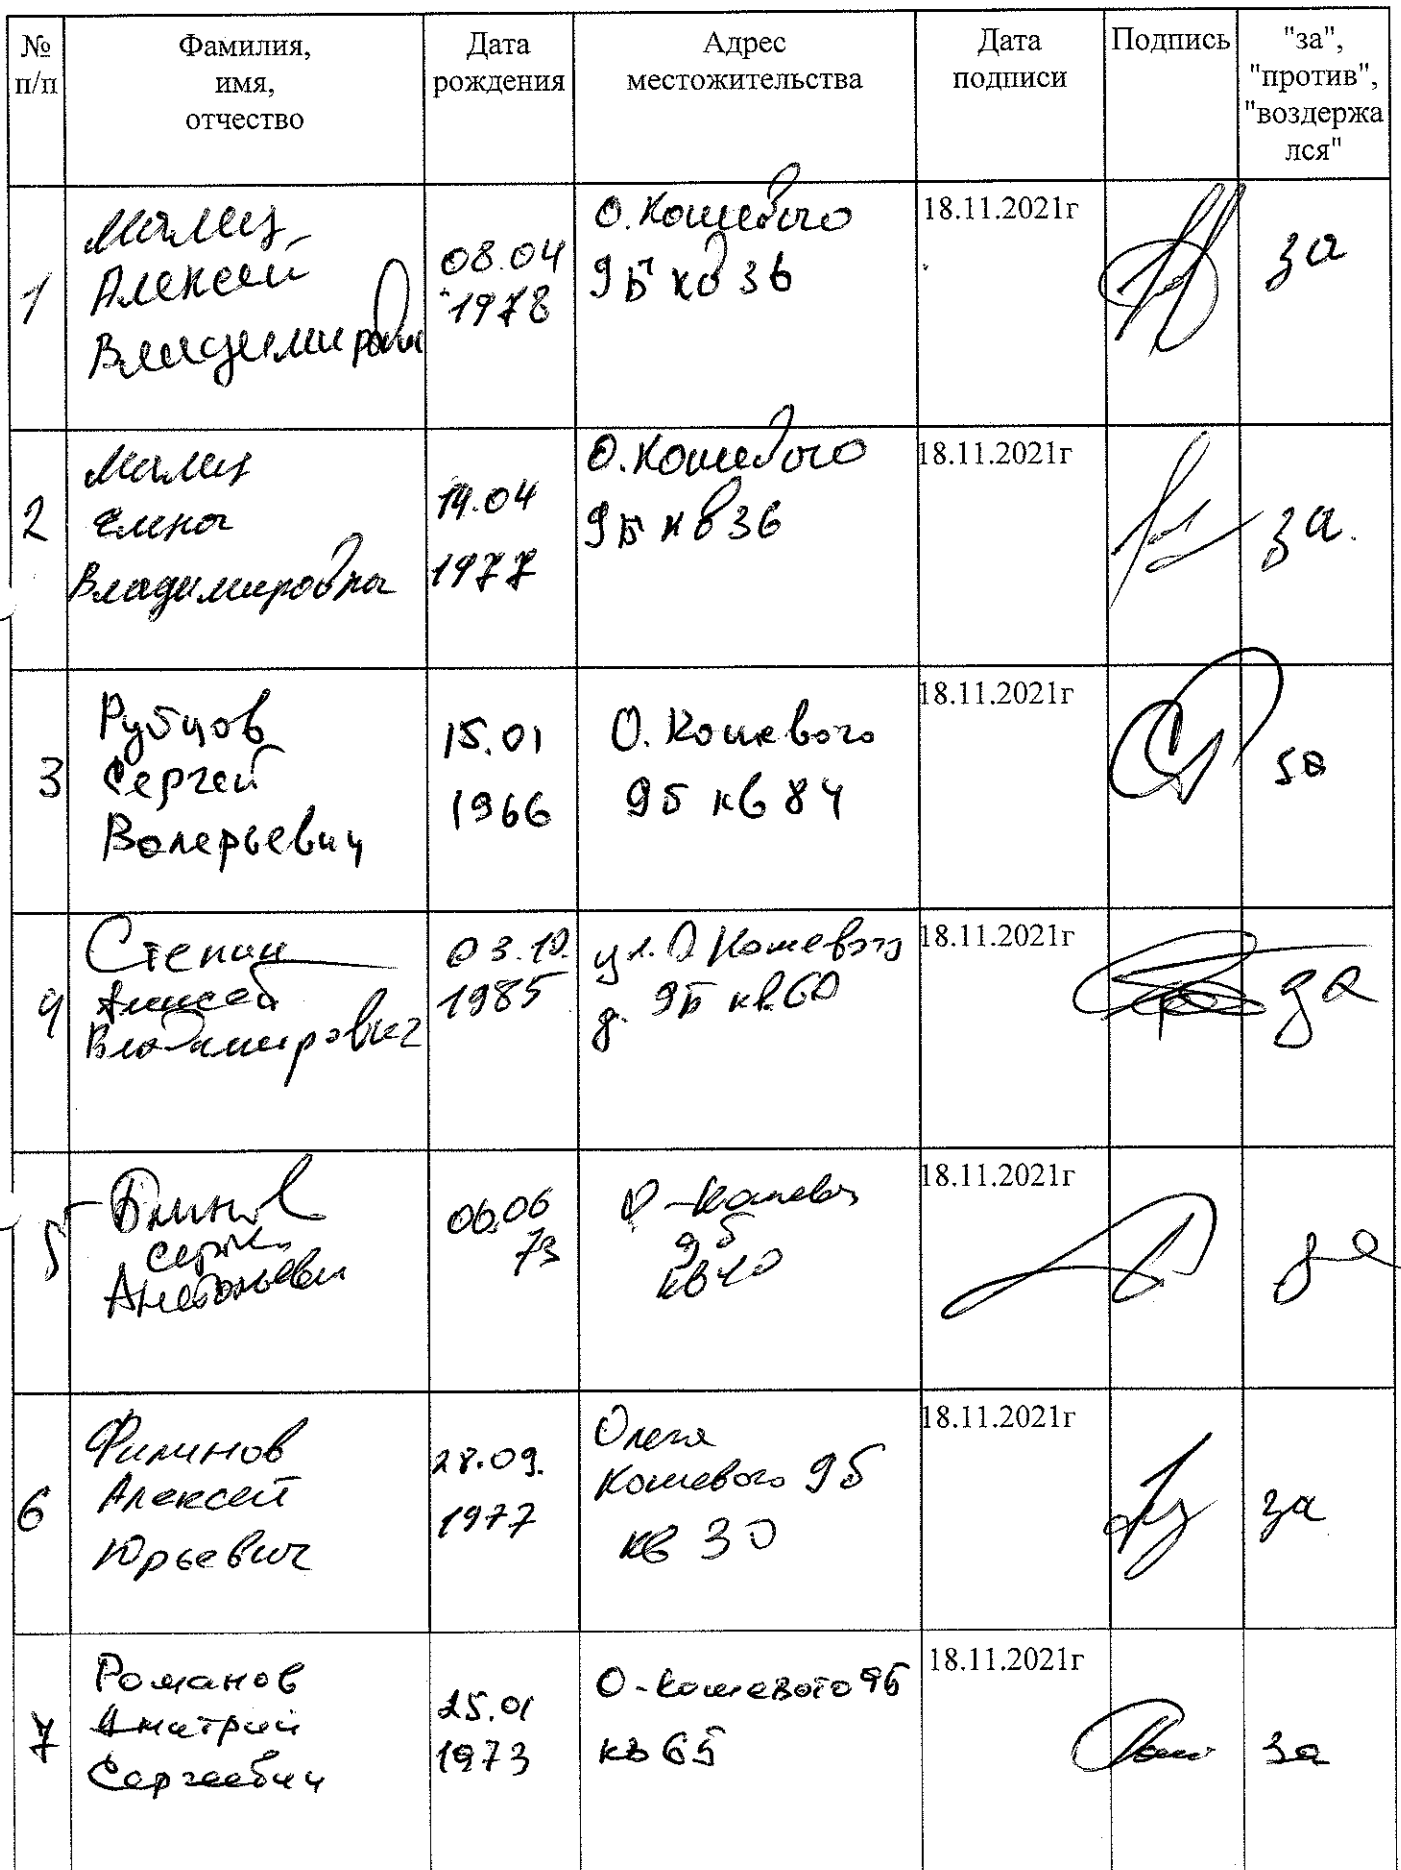 № п/п
Фамилия, имя, отчество
Дата рождения
Адрес местожительства
Дата подписи
Подпись
"за", "против", "воздержался"
1
Малец
Алексей
Владимирович
08.04
1978
О. Кошевого
9Б кв 36
18.11.2021г
за
2
Малец
Елена
Владимировна
14.04
1977
О. Кошевого
9Б кв 36
18.11.2021г
за.
3
Рубцов
Сергей
Валерьевич
15.01
1966
О. Кошевого
9Б кв 84
18.11.2021г
за
4
Степин
Алексей
Владимирович
03.10.
1985
ул. О Кошевого
д. 9Б кв. 60
18.11.2021г
за
5
Блинов
Сергей
06.06
73
О-Кошевого
9Б
18.11.2021г
за
6
Филинов
Алексей
Юрьевич
28.09.
1977
Олега
Кошевого 9б
кв 30
18.11.2021г
за
7
Романов
Дмитрий
Сергеевич
25.01
1973
О-Кошевого 9б
кв 65
18.11.2021г
за